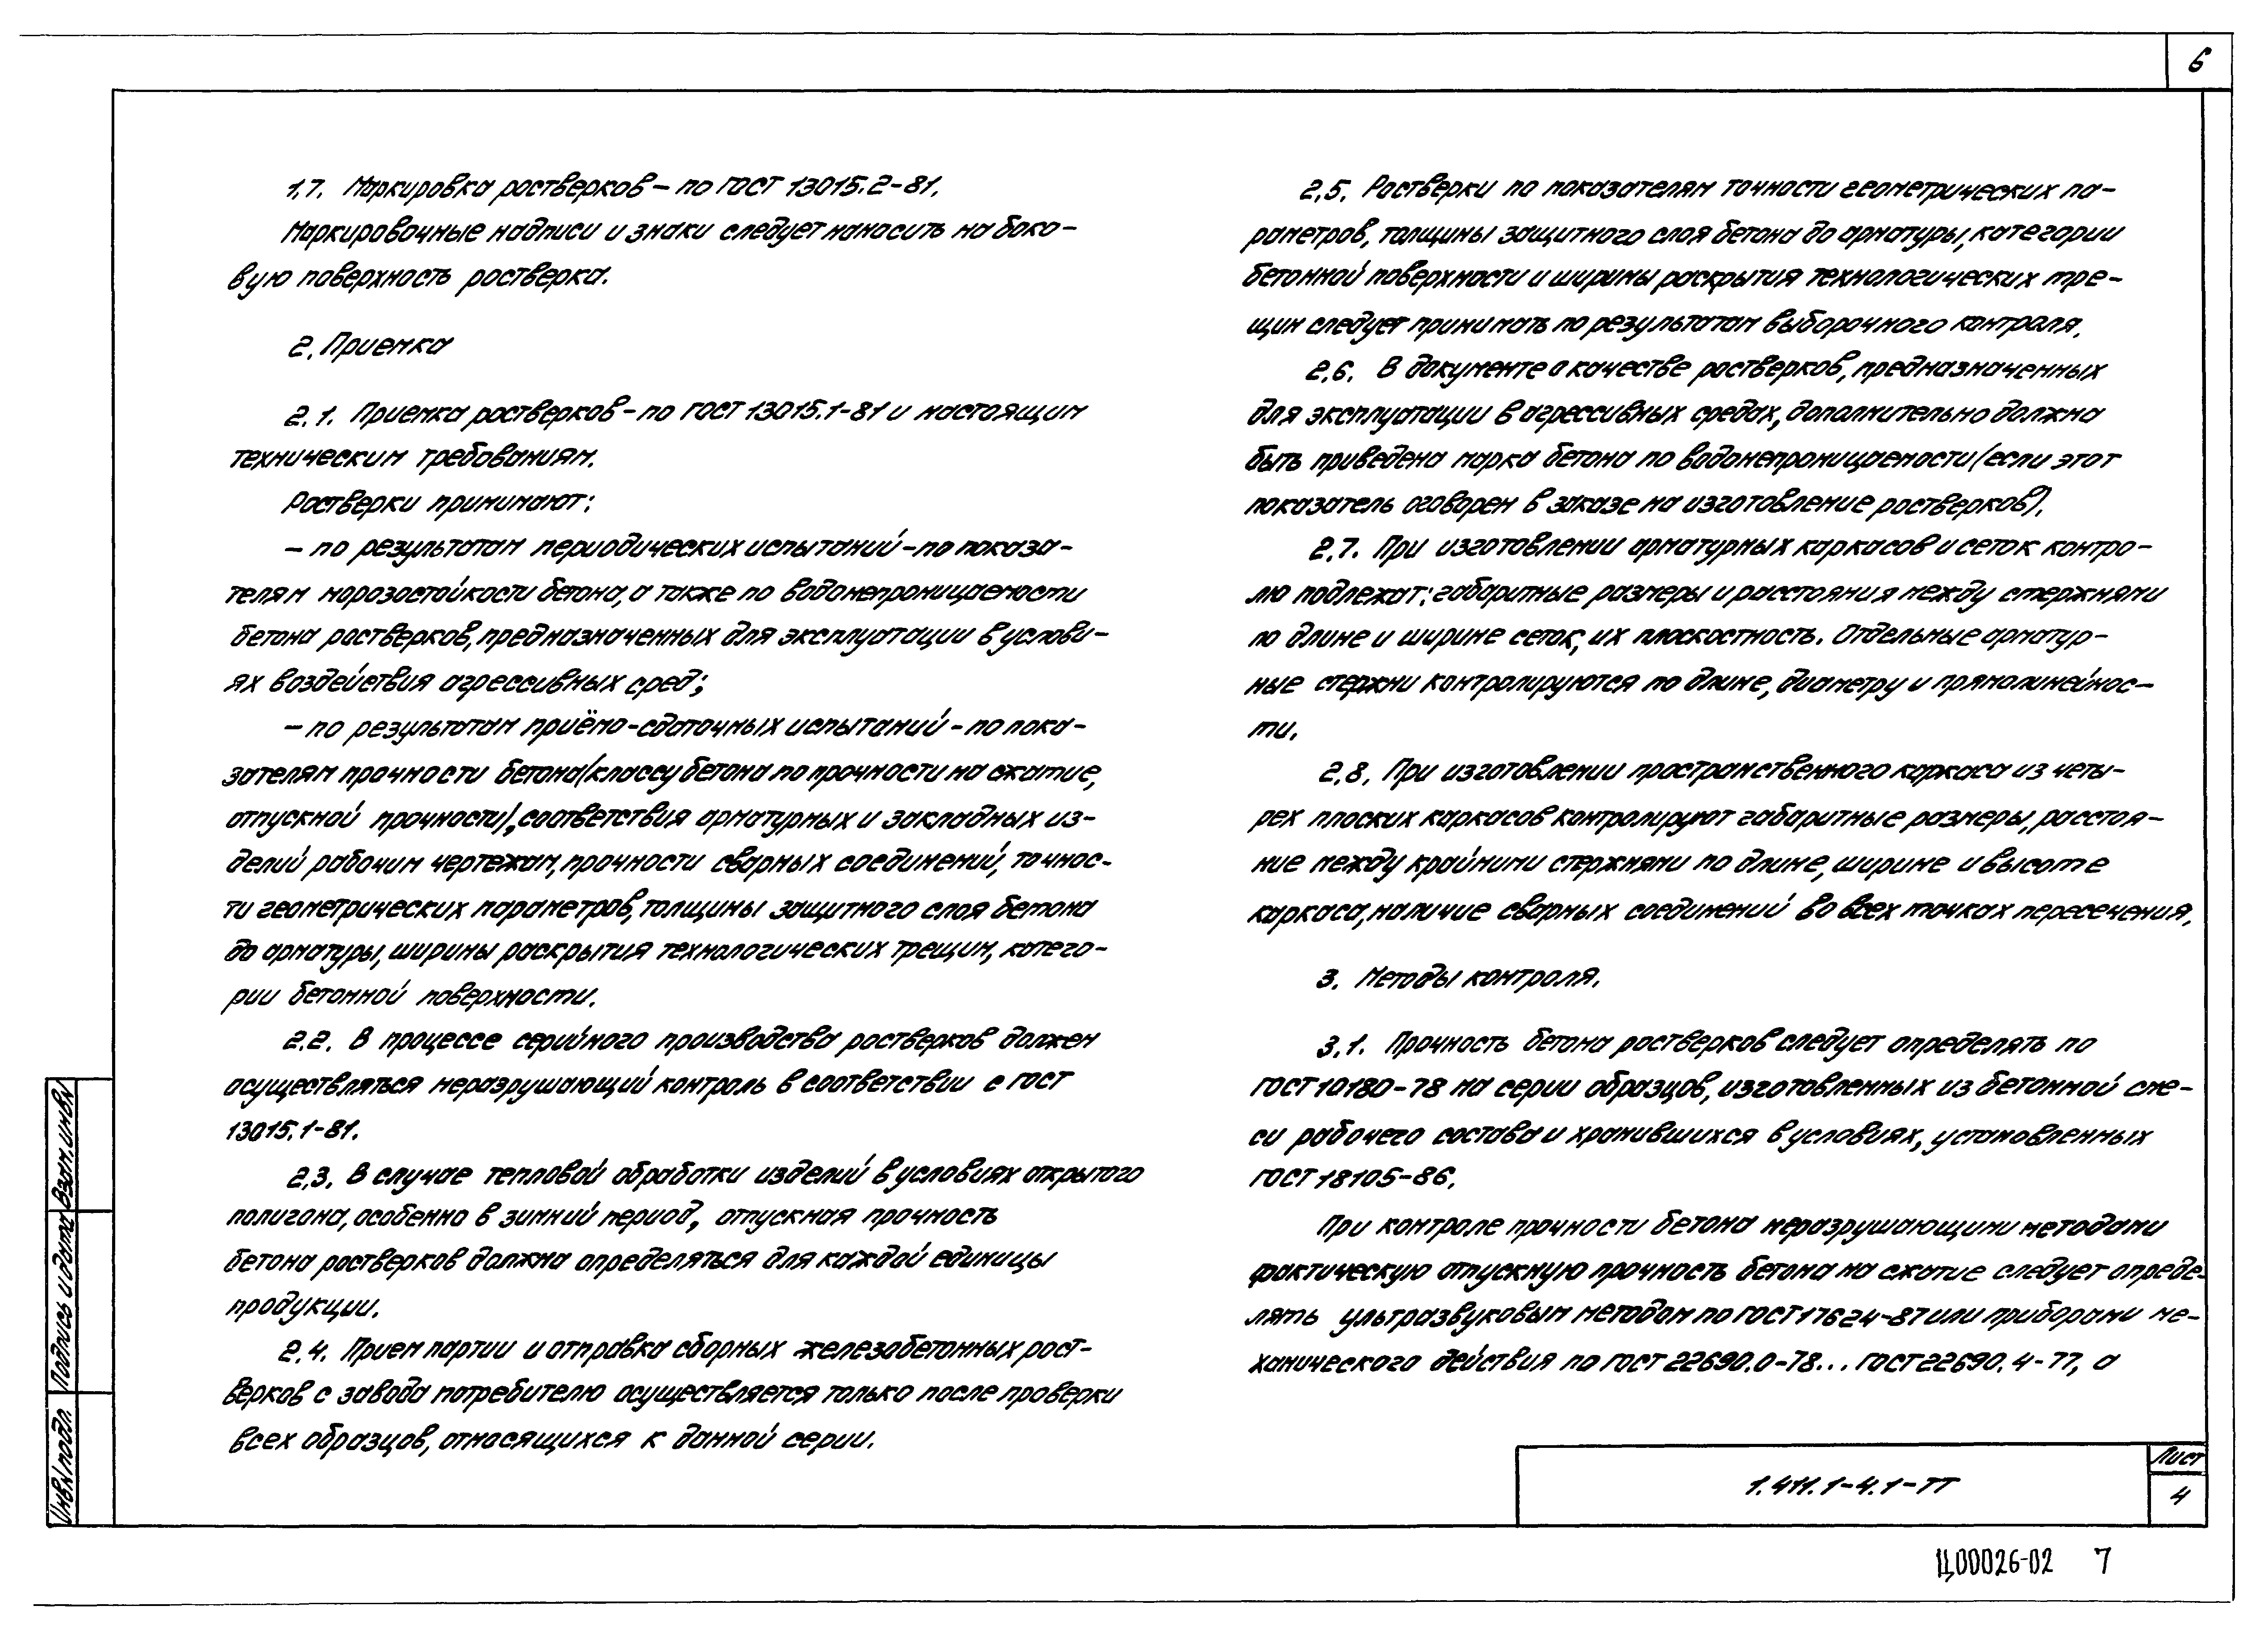 6
1.7. Маркировка ростверков – по ГОСТ 13015.2-81.
Маркировочные надписи и знаки следует наносить на боко-
вую поверхность ростверка.
2. Приемка
2.1. Приемка ростверков – по ГОСТ 13015.1-81 и настоящим
техническим требованиям.
Ростверки принимают:
– по результатам периодических испытаний – по показа-
телям морозостойкости бетона, а также по водонепроницаемости
бетона ростверков, предназначенных для эксплуатации в услови-
ях воздействия агрессивных сред;
– по результатам приёмо-сдаточных испытаний – по пока-
зателям прочности бетона (классу бетона по прочности на сжатие,
отпускной прочности), соответствия арматурных и закладных из-
делий рабочим чертежам, прочности сварных соединений, точнос-
ти геометрических параметров, толщины защитного слоя бетона
до арматуры, ширины раскрытия технологических трещин, катего-
рии бетонной поверхности.
2.2. В процессе серийного производства ростверков должен
осуществляться неразрушающий контроль в соответствии с ГОСТ
13015.1-81.
2.3. В случае тепловой обработки изделий в условиях открытого
полигона, особенно в зимний период, отпускная прочность
бетона ростверков должна определяться для каждой единицы
продукции.
2.4. Прием партии и отправка сборных железобетонных рост-
верков с завода потребителю осуществляется только после проверки
всех образцов, относящихся к данной серии.
2.5. Ростверки по показателям точности геометрических па-
раметров, толщины защитного слоя бетона до арматуры, категории
бетонной поверхности и ширины раскрытия технологических тре-
щин следует принимать по результатам выборочного контроля.
2.6. В документе о качестве ростверков, предназначенных
для эксплуатации в агрессивных средах, дополнительно должна
быть приведена марка бетона по водонепроницаемости (если этот
показатель оговорен в заказе на изготовление ростверков).
2.7. При изготовлении арматурных каркасов и сеток контро-
лю подлежат: габаритные размеры и расстояния между стержнями
по длине и ширине сеток, их плоскостность. Отдельные арматур-
ные стержни контролируются по длине, диаметру и прямолинейнос-
ти.
2.8. При изготовлении пространственного каркаса из четы-
рех плоских каркасов контролируют габаритные размеры, расстоя-
ние между крайними стержнями по длине, ширине и высоте
каркаса, наличие сварных соединений во всех точках пересечения.
3. Методы контроля.
3.1. Прочность бетона ростверков следует определять по
ГОСТ 10180-78 на серии образцов, изготовленных из бетонной сме-
си рабочего состава и хранившихся в условиях, установленных
ГОСТ 18105-86.
При контроле прочности бетона неразрушающими методами
фактическую отпускную прочность бетона на сжатие следует опреде-
лять ультразвуковым методом по ГОСТ 17624-87 или приборами ме-
ханического действия по ГОСТ 22690.0-78... ГОСТ 22690.4-77, а
Взам. инв.№
Подпись и дата
Инв.№ подл.
1.411.1-4.1-ТТ
Лист
4
Ц00026-02 7